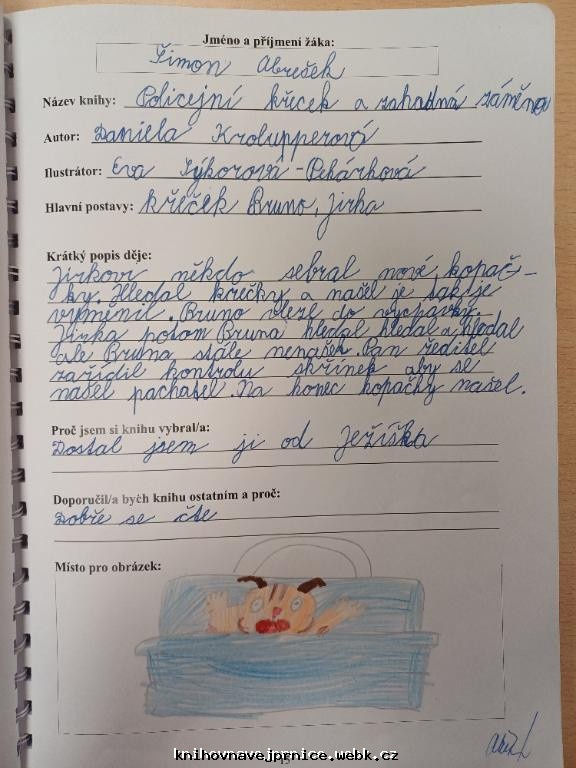 Jméno a příjmení žáka:
Šimon Abrešek
Název knihy: Policejní křeček a záhadná záměna
Autor: Daniela Krolupperová
Ilustrátor: Eva Sýkorová-Pekárková
Hlavní postavy: křeček Bruno, Jirka
Krátký popis děje:
Jirkovi někdo sebral nové kopač-
ky. Hledal křečky a našel je tak je
vyměnil. Bruno vlezl do
Jirka potom Bruna hledal hledal a hledal
ale Bruna stále nenašel. Pan ředitel
zařídil kontrolu skřínek aby se
našel pachatel. Na konec kopačky našel.
Proč jsem si knihu vybral/a:
Dostal jsem ji od Ježíška
Doporučil/a bych knihu ostatním a proč:
Dobře se čte
Místo pro obrázek:
15
knihovnavejprnice.webk.cz